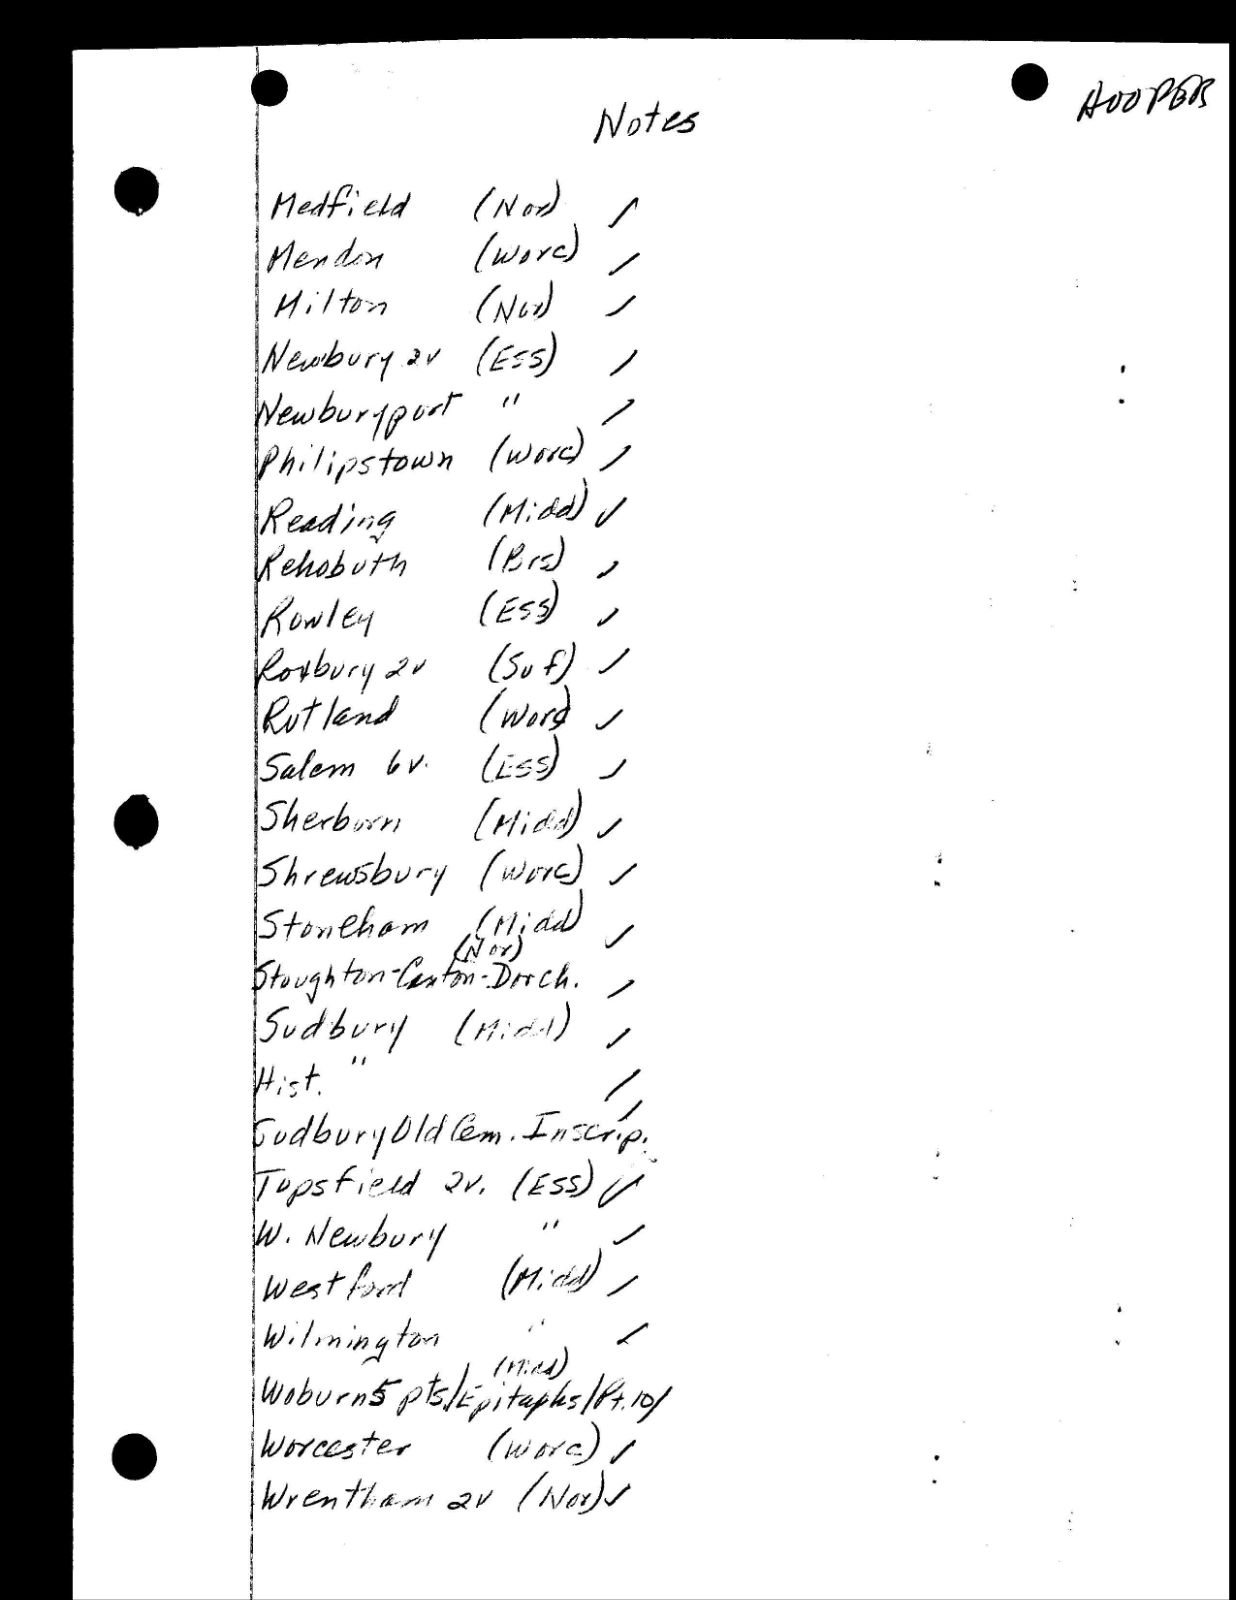 HOOPER
Notes
Medfield (Nor) ✓
Mendon (Worc) ✓
Milton (Nor) ✓
Newbury 2v (Ess) ✓
Newburyport " ✓
Philipstown (Worc) ✓
Reading (Midd) ✓
Rehoboth (Brs) ✓
Rowley (Ess) ✓
Roxbury 2v (Suf) ✓
Rutland (Worc) ✓
Salem 6v. (Ess) ✓
Sherborn (Midd) ✓
Shrewsbury (Worc) ✓
Stoneham (Midd) ✓
(Nor)
Stoughton-Canton-Dorch. ✓
Sudbury (Midd) ✓
Hist. " ✓
Sudbury Old Cem. Inscrip. ✓
Topsfield 2v. (Ess) ✓
W. Newbury " ✓
Westford (Midd) ✓
Wilmington " ✓
(Midd)
Woburn 5 pts/Epitaphs/Pt.10/
Worcester (Worc) ✓
Wrentham 2v (Nor) ✓